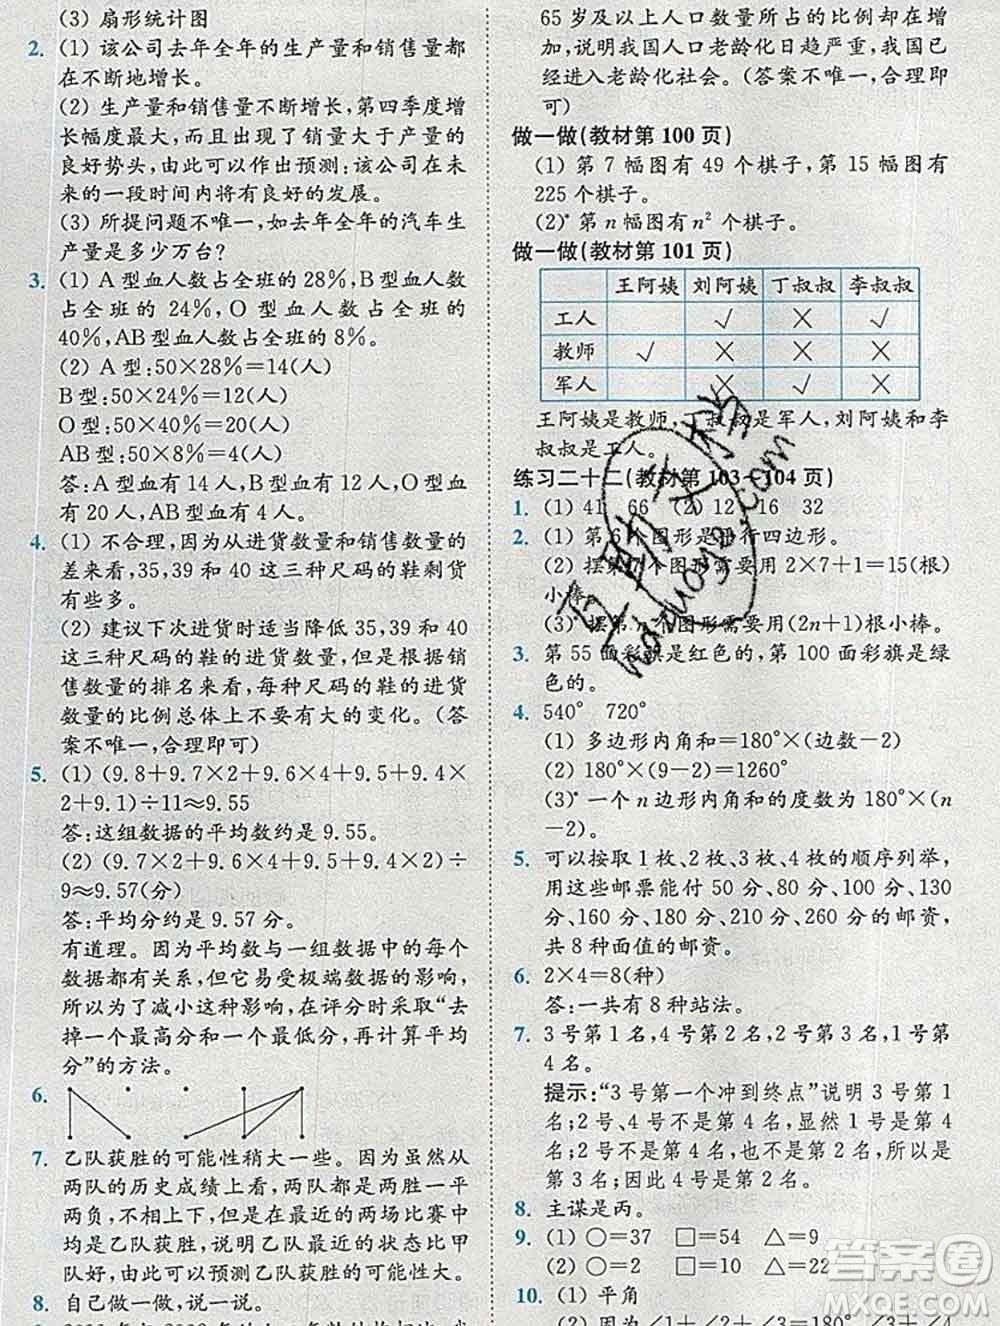 (3) 扇形统计图
2. (1) 该公司去年全年的生产量和销售量都
在不断地增长。
(2) 生产量和销售量不断增长，第四季度增
长幅度最大，而且出现了销量大于产量的
良好势头，由此可以作出预测：该公司在未
来的一段时间内将有良好的发展。
(3) 所提问题不唯一，如去年全年的汽车生
产量是多少万台？
3. (1) A 型血人数占全班的 28％，B 型血人数
占全班的 24％，O 型血人数占全班的
40％，AB 型血人数占全班的 8％。
(2) A 型：50×28％＝14(人)
B 型：50×24％＝12(人)
O 型：50×40％＝20(人)
AB 型：50×8％＝4(人)
答：A 型血有 14 人，B 型血有 12 人，O 型血
有 20 人，AB 型血有 4 人。
4. (1) 不合理，因为从进货数量和销售数量的
差来看，35,39 和 40 这三种尺码的鞋剩货
有些多。
(2) 建议下次进货时适当降低 35,39 和 40
这三种尺码的鞋的进货数量，但是根据销
售数量的排名来看，每种尺码的鞋的进货
数量的比例总体上不要有大的变化。(答
案不唯一，合理即可)
5. (1) (9.8＋9.7×2＋9.6×4＋9.5＋9.4×
2＋9.1)÷11≈9.55
答：这组数据的平均数约是 9.55。
(2) (9.7×2＋9.6×4＋9.5＋9.4×2)÷
9≈9.57(分)
答：平均分约是 9.57 分。
有道理。因为平均数与一组数据中的每个
数据都有关系，但它易受极端数据的影响，
所以为了减小这种影响，在评分时采取“去
掉一个最高分和一个最低分，再计算平均
分”的方法。
6.
7. 乙队获胜的可能性稍大一些。因为虽然从
两队的历史成绩上看，两队都是两胜一平
两负，不相上下，但是在最近的两场比赛中
均是乙队获胜，说明乙队最近的状态比甲
队好，由此可以预测乙队获胜的可能性大。
8. 自己做一做，说一说。
65 岁及以上人口数量所占的比例却在增
加，说明我国人口老龄化日趋严重，我国已
经进入老龄化社会。(答案不唯一，合理即
可)
做一做(教材第 100 页)
(1) 第 7 幅图有 49 个棋子，第 15 幅图有
225 个棋子。
(2)* 第 n 幅图有 n² 个棋子。
做一做(教材第 101 页)
王阿姨 刘阿姨 丁叔叔 李叔叔
工人 √ × √
教师 √ × × ×
军人 × √ ×
王阿姨是教师，丁叔叔是军人，刘阿姨和李
叔叔是工人。
练习二十二(教材第 103－104 页)
1. (1) 41 66 (2) 12 16 32
2. (1) 第 6 个图形是平行四边形。
(2) 摆第 7 个图形需要用 2×7＋1＝15(根)
小棒。
(3)* 摆第 n 个图形需要用(2n＋1)根小棒。
3. 第 55 面彩旗是红色的，第 100 面彩旗是绿
色的。
4. 540° 720°
(1) 多边形内角和＝180°×(边数－2)
(2) 180°×(9－2)＝1260°
(3)* 一个 n 边形内角和的度数为 180°×(n
－2)。
5. 可以按取 1 枚、2 枚、3 枚、4 枚的顺序列举，
用这些邮票能付 50 分、80 分、100 分、130
分、160 分、180 分、210 分、260 分的邮资，
共 8 种面值的邮资。
6. 2×4＝8(种)
答：一共有 8 种站法。
7. 3 号第 1 名，4 号第 2 名，2 号第 3 名，1 号第
4 名。
提示：“3 号第一个冲到终点”说明 3 号第 1
名；2 号、4 号不是第 4 名，显然 1 号第 4
名；2 号不是第 4 名，也不是第 2 名，就是第
3 名；因此 4 号只能是第 2 名。
8. 主谋是丙。
9. (1) ○＝37 □＝54 △＝9
(2) ○＝2 □＝10 △＝22
10. (1) 平角
(2) 因为∠1＋∠2＋∠3＋∠4
百助文档
hdzuoye.com
答案圈
MXQE.COM